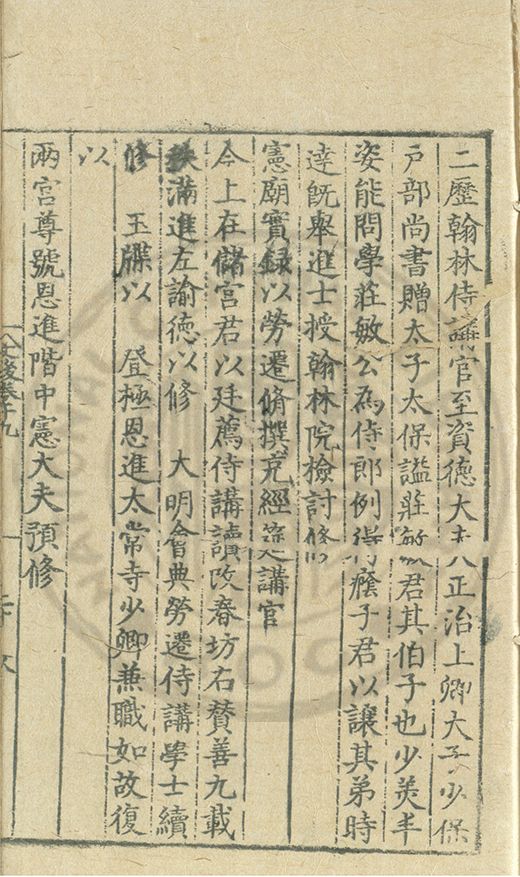 二歷翰林侍講官至資德大夫正治上卿太子少保
戶部尚書贈太子太保諡莊敏君其伯子也少美丰
姿能問學莊敏公為侍郎例得廕子君以讓其弟時
達既舉進士授翰林院檢討修
憲廟實錄以勞遷脩撰充經筵講官
今上在儲宮君以廷薦侍講讀改春坊右贊善九載
秩滿進左諭德以修 大明會典勞遷侍講學士續
修 玉牒以 登極恩進太常寺少卿兼職如故復
以
兩宮尊號恩進階中憲大夫預修